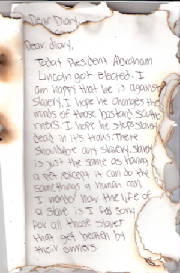 Dear Diary
Dear diary,
Todat President Abraham
Lincoln got elected. I
am happy that he is against
slavery. I hope he changes the
minds of those
I hope he stops slavery
dead in it's tracks. There
shouldnt be any slavery. slavery
is just the same as having
a pet except it can do the
same things a human can.
I wonder how the life of
a slave is I feel sorry
for all those slaves
that get beaten by
their owners